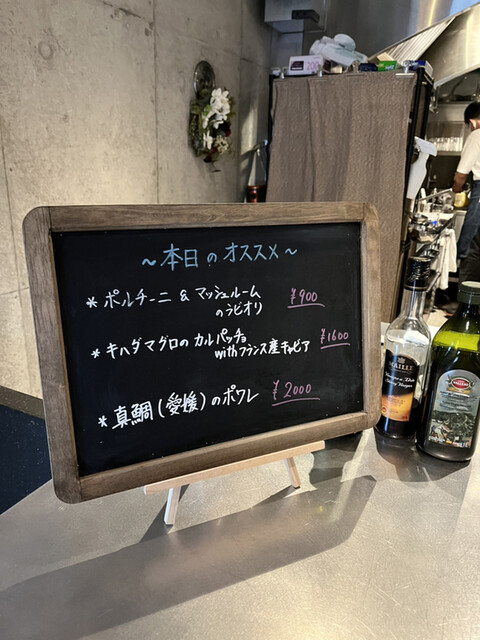 ～本日のオススメ～
* ポルチーニ & マッシュルーム
のラビオリ ¥900
* キハダマグロのカルパッチョ
withフランス産キャビア ¥1600
* 真鯛(愛媛)のポワレ ¥2000
MAILLE